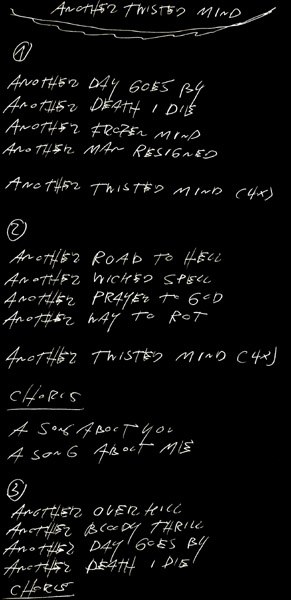 ANOTHER TWISTED MIND
1
ANOTHER DAY GOES BY
ANOTHER DEATH I DIE
ANOTHER FROZEN MIND
ANOTHER MAN RESIGNED
ANOTHER TWISTED MIND (4X)
2
ANOTHER ROAD TO HELL
ANOTHER WICKED SPELL
ANOTHER PRAYER TO GOD
ANOTHER WAY TO ROT
ANOTHER TWISTED MIND (4X)
CHORUS
A SONG ABOUT YOU
A SONG ABOUT ME
3
ANOTHER OVERKILL
ANOTHER BLOODY THRILL
ANOTHER DAY GOES BY
ANOTHER DEATH I DIE
CHORUS